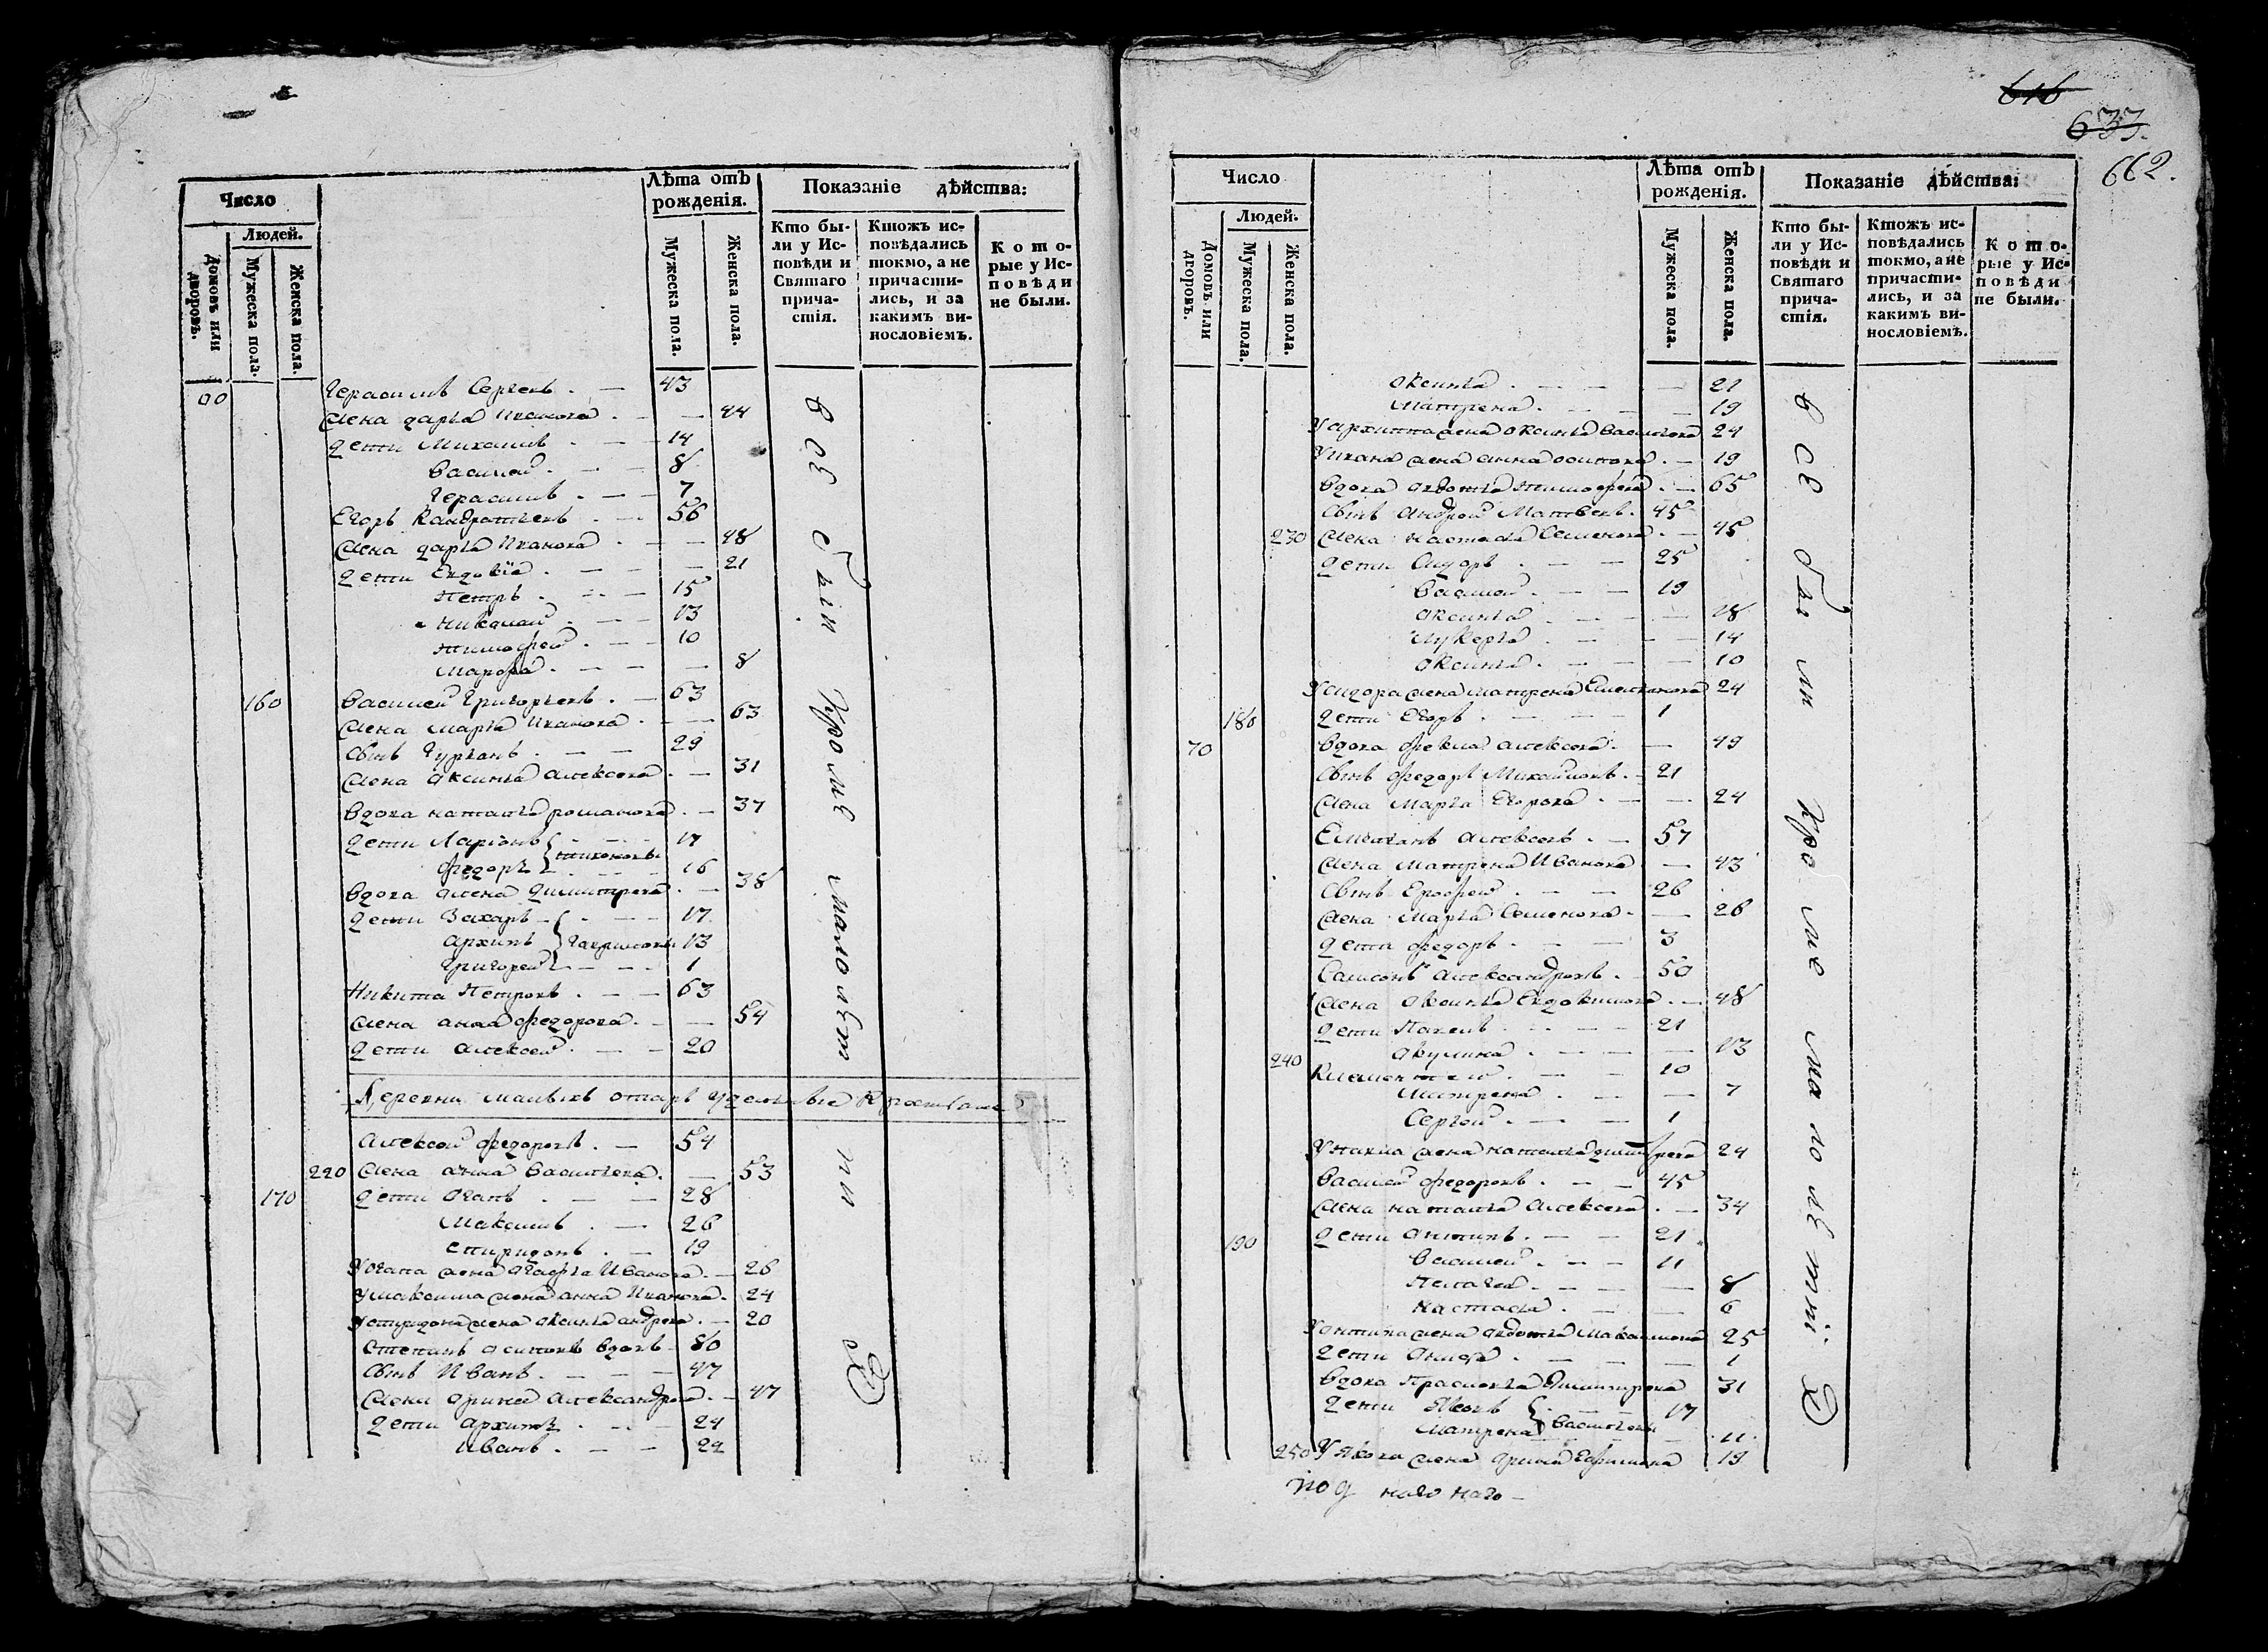 Число
Людей.
Домовъ или дворовъ.
Мужеска пола.
Женска пола.
Лѣта отъ рожденія.
Мужеска пола.
Женска пола.
Показаніе дѣйства:
Кто бы-
ли у Ис-
повѣди и
Святаго
прича-
стія.
Ктожъ ис-
повѣдались
токмо, а не
причасти-
лись, и за
какимъ ви-
нословіемъ.
Кото-
рые у Ис-
повѣди
не были.
Герасимъ Сергеевъ . — 43
жена дарья Иванова . — 44
дети Михаилъ . — 14
Василей . — 8
Герасимъ . — 7
Егоръ Кандратьевъ . — 56
жена дарья Иванова . — 48
дети Евдокїя . — 21
Петръ . — 15
Николай . — 13
Тимофей . — 10
Марфа . — 8
160 Василей Григорьевъ . — 63
жена марья Иванова . — 63
сынъ Гурьянъ . — 29
жена аксинья алексеева . — 31
вдова наталья романова . — 37
дети Ларионъ 17
федоръ тихоновы 16
вдова алена димитрева . — 38
дети Захаръ — 17
архипъ гавриловы 13
григорей — 1
Никита Петровъ . — 63
жена анна федорова . — 54
дети алексей . — 20
Деревни
алексей федоровъ . — 54
220 жена анна васильева . — 53
170 дети Аганъ . — 28
Максимъ . — 26
спиридонъ . — 19
жена агафья Иванова . — 26
у максима жена анна Иванова . 24
у спиридона жена аксинья андреева . — 20
степанъ осиповъ вдовъ — 80
сынъ Иванъ . — 47
жена арина александрова . — 47
дети архипъ . — 24
Иванъ . — 22
все были кроме малолетнихъ
616
637.
662.
Число
Людей.
Домовъ или дворовъ.
Мужеска пола.
Женска пола.
Лѣта отъ рожденія.
Мужеска пола.
Женска пола.
Показаніе дѣйства:
Кто бы-
ли у Ис-
повѣди и
Святаго
прича-
стія.
Ктожъ ис-
повѣдались
токмо, а не
причасти-
лись, и за
какимъ ви-
нословіемъ.
Кото-
рые у Ис-
повѣди
не были.
аксинья . — 21
матрена . — 19
у архипа жена аксинья васильева 24
у ивана жена анна осипова . — 19
вдова авдотья тимофеева . — 65
сынъ андрей Матвеевъ . 45
230 жена настасья семенова . — 45
дети Сидоръ . — 25
василей . — 19
аксинья . — 18
лукерья . — 14
аксинья . — 10
у сидора жена матрена Емельянова 24
180 дети Егоръ . — 1
70 вдова фекла алексеева . — 49
сынъ федоръ Михайловъ . — 21
жена Марья Егорова . — 24
Емельянъ алексеевъ . — 57
жена матрена Иванова — 43
сынъ Ерофей . — 26
жена марья семенова . — 26
дети федоръ . — 3
Самсонъ александровъ . — 50
жена аксинья Евдокимова . — 48
дети Павелъ . — 21
240 акулина . — 13
Клементей . — 10
Матрена . — 7
Сергей . — 1
у павла жена наталья димитрева 24
василей федоровъ . — 45
жена наталья алексеева . — 34
190 дети антипъ . — 21
василей . — 11
Пелагея . — 8
настасья . — 6
у антипа жена авдотья максимова 25
дети анисья . — 1
вдова Прасковья димитрева 31
дети Яковъ 17
матрена васильевы 11
250 у якова жена арина Ефимова 19
все были кроме малолетнихъ